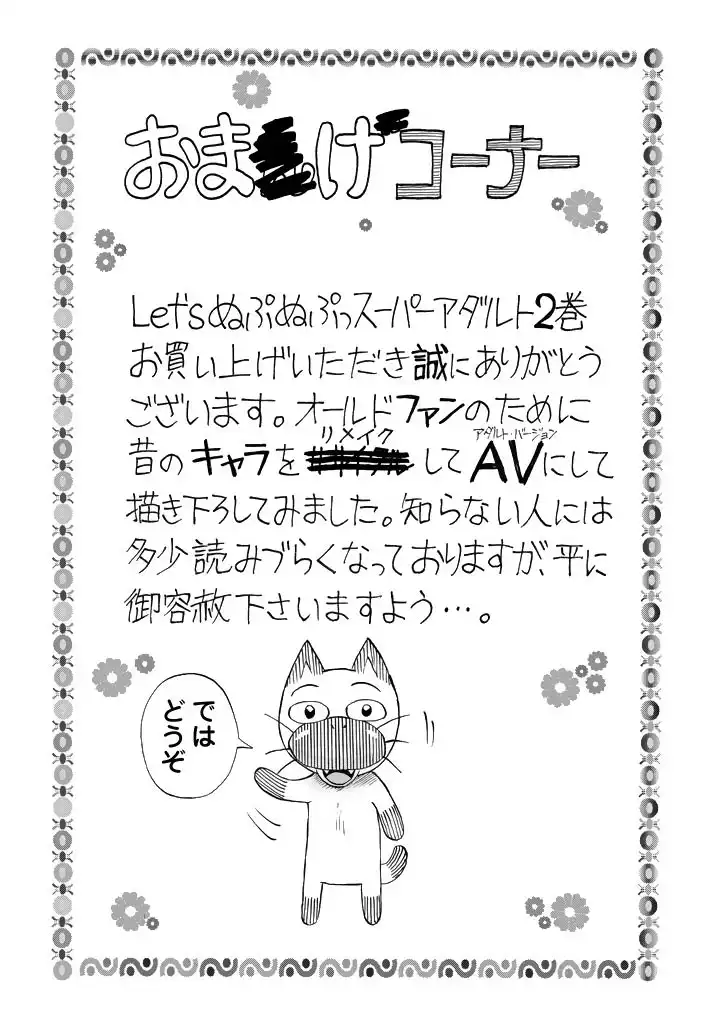 おまけコーナー
Let'sぬぷぬぷっスーパーアダルト2巻
お買い上げいただき誠にありがとう
ございます。オールドファンのために
リメイク アダルト・バージョン
昔のキャラを してAVにして
描き下ろしてみました。知らない人には
多少読みづらくなっておりますが、平に
御容赦下さいますよう…。
では
どうぞ